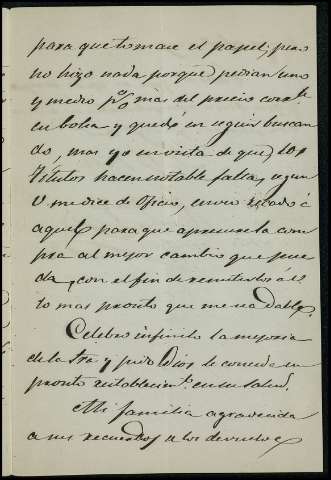 para que tomare el papel, pero
no hizo nada porque pedian uno
y medio p% mas del precio corr.te
en bolsa y quedó en seguir buscan
do, mas yo en vista de que los
Títulos hacen notable falta, segun
V. me dice de oficio, envio recado á
aquel para que apresure la com
pra al mejor cambio que pue
da, con el fin de remitirlos á es
to mas pronto que me sea dable.
Celebro infinito la mejoria
de la Sra y pido á Dios le conceda un
pronto restablecim.to en su salud.
Mi familia agradecida
a sus recuerdos se los devuelve